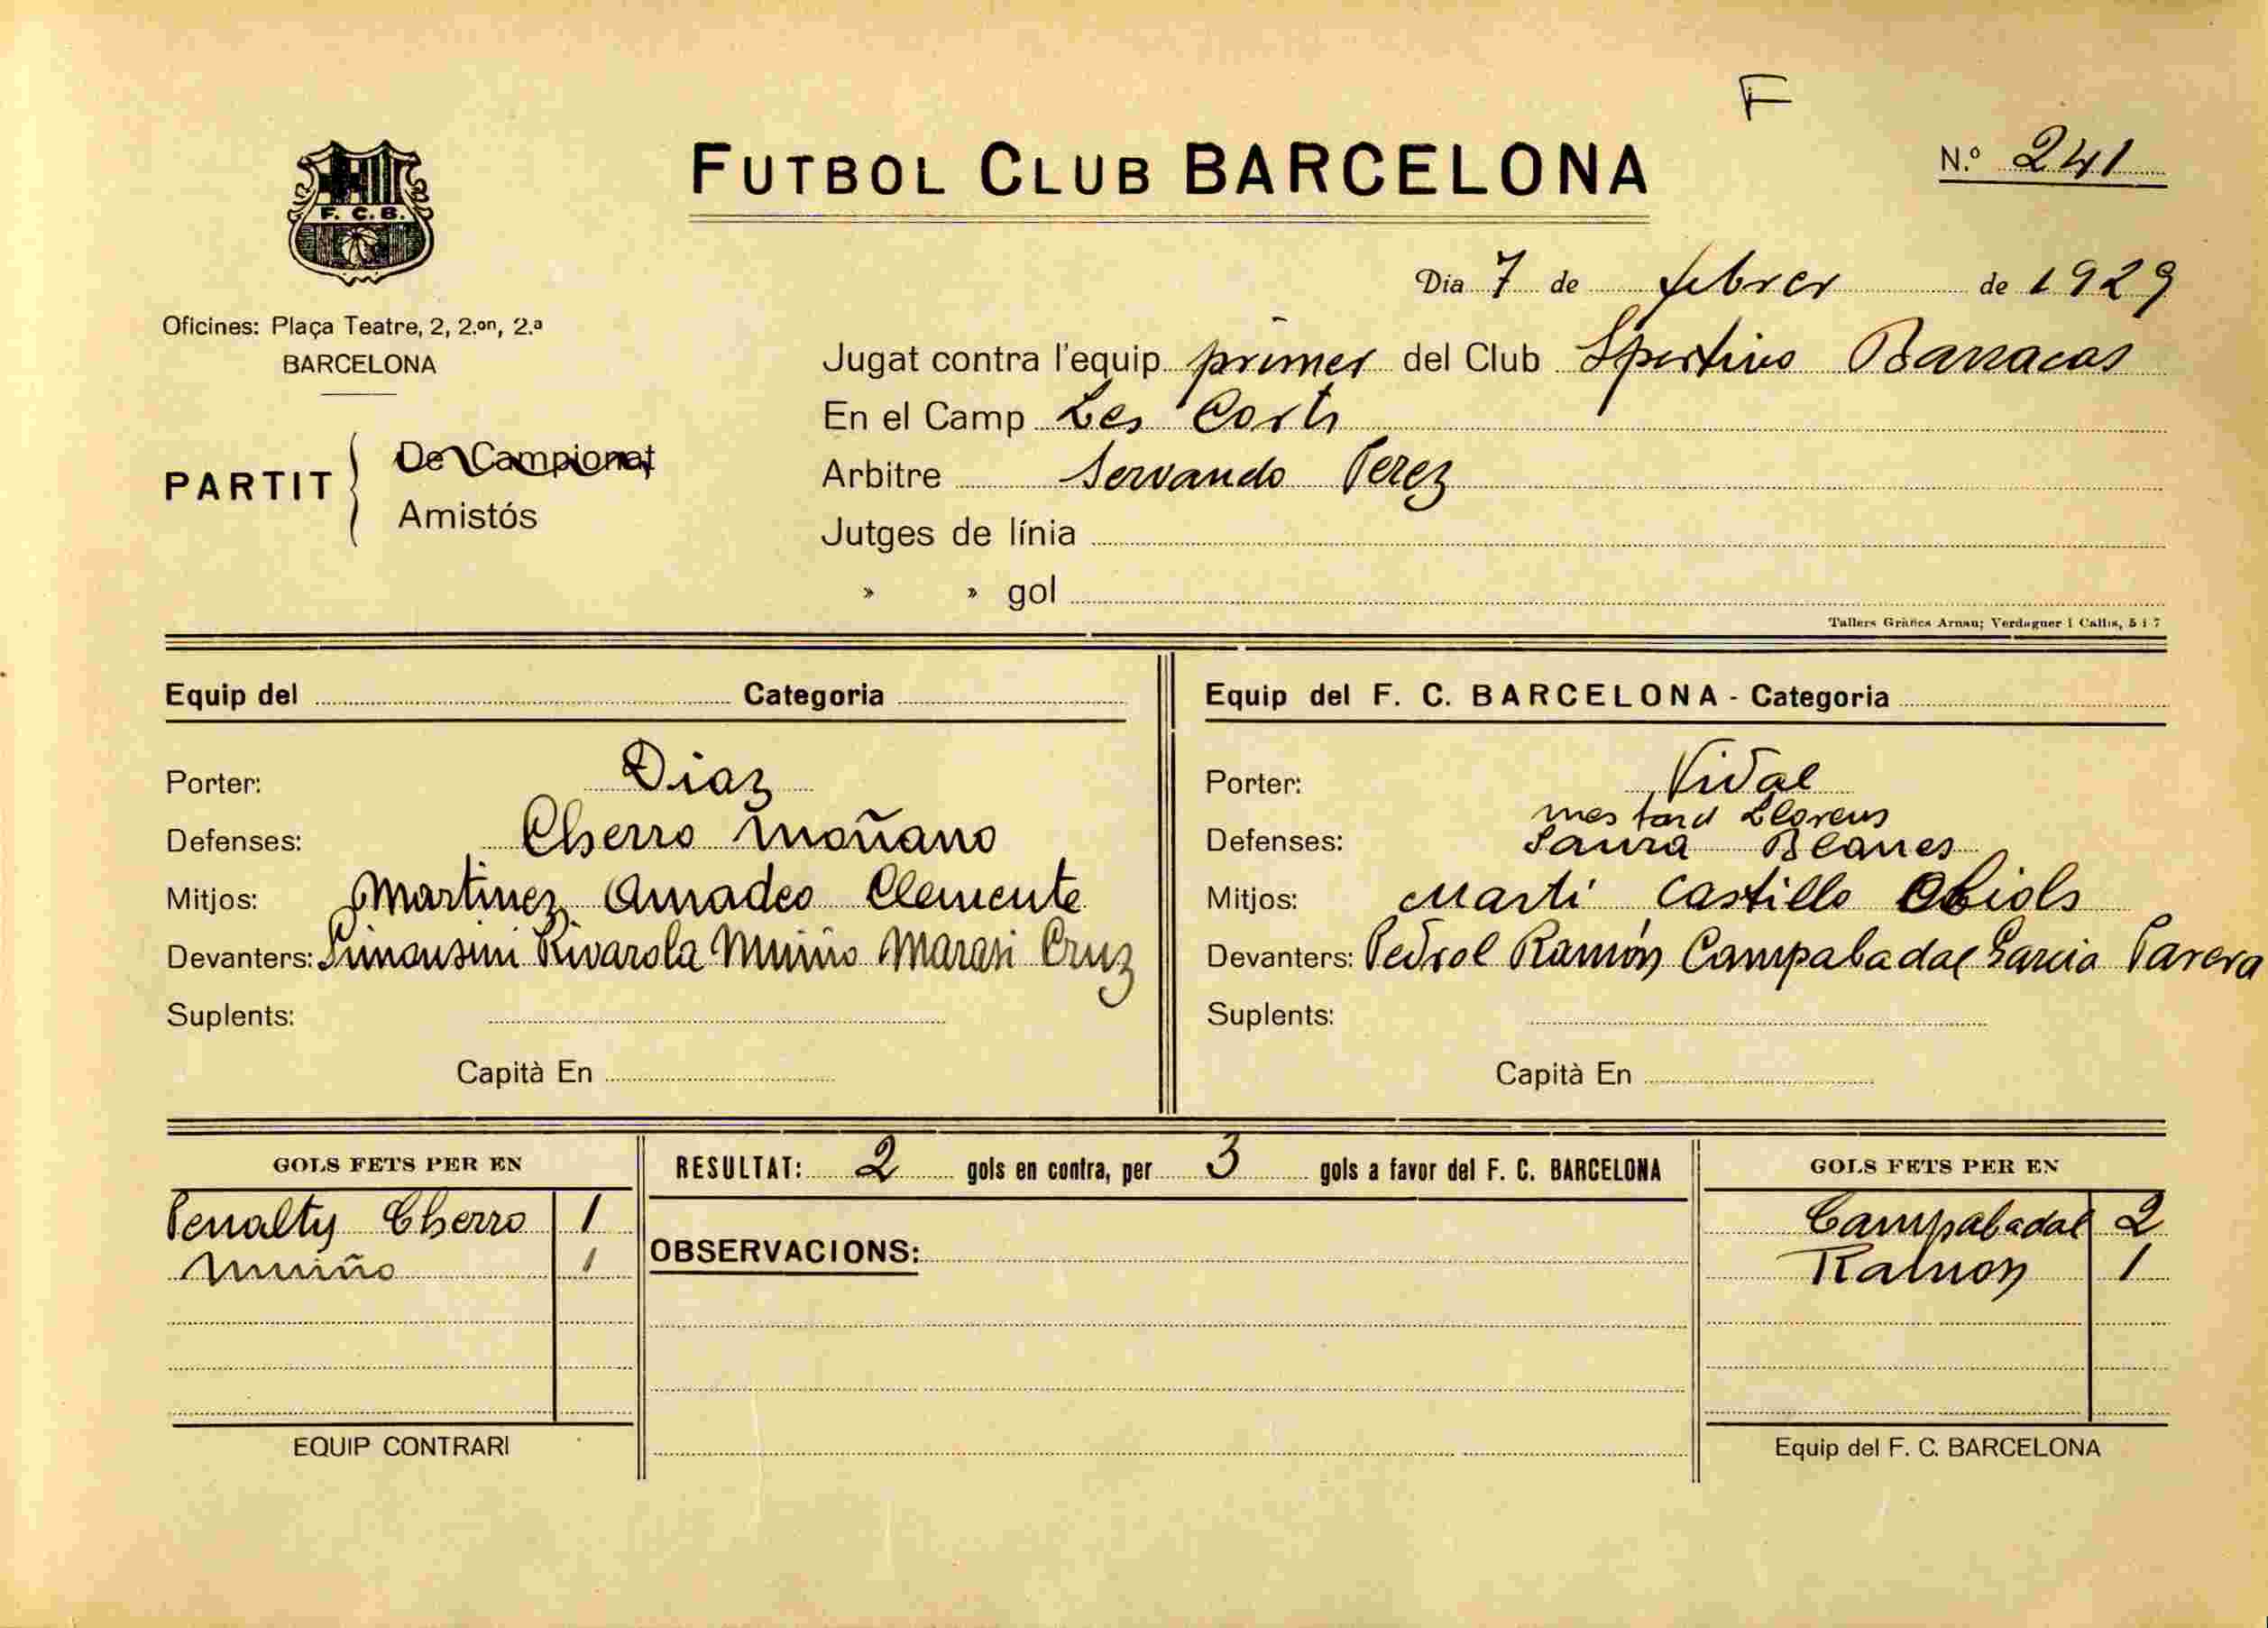 F
FUTBOL CLUB BARCELONA
N.º 241
F. C. B.
Dia 7 de febrer de 1929
Oficines: Plaça Teatre, 2, 2.on, 2.ª
BARCELONA
Jugat contra l'equip primer del Club Sportivo Barracas
En el Camp Les Corts
PARTIT
De Campionat
Amistós
Arbitre Servando Perez
Jutges de línia
» » gol
Tallers Gràfics Arnau; Verdaguer i Callís, 5 i 7
Equip del Categoria
Porter: Diaz
Defenses: Cherro Moñano
Mitjos: Martinez Amadeo Clemente
Devanters: Rivarola Muiño Marasi Cruz
Suplents:
Capità En
Equip del F. C. BARCELONA - Categoria
Porter: Vidal
mes tard Llorens
Defenses: Saura Blanes
Mitjos: Martí Castillo Obiols
Devanters: Pedrol Ramón Campabadal Garcia Parera
Suplents:
Capità En
GOLS FETS PER EN
Penalty Cherro 1
Muiño 1
EQUIP CONTRARI
RESULTAT: 2 gols en contra, per 3 gols a favor del F. C. BARCELONA
OBSERVACIONS:
GOLS FETS PER EN
Campabadal 2
Ramon 1
Equip del F. C. BARCELONA